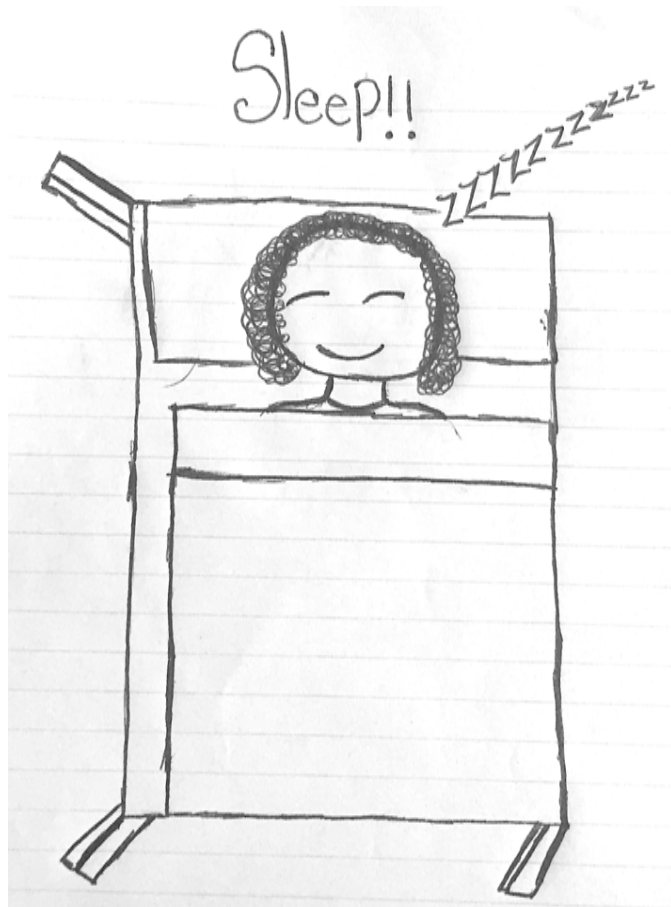 Sleep!!
ZZZZZZZZzzzz